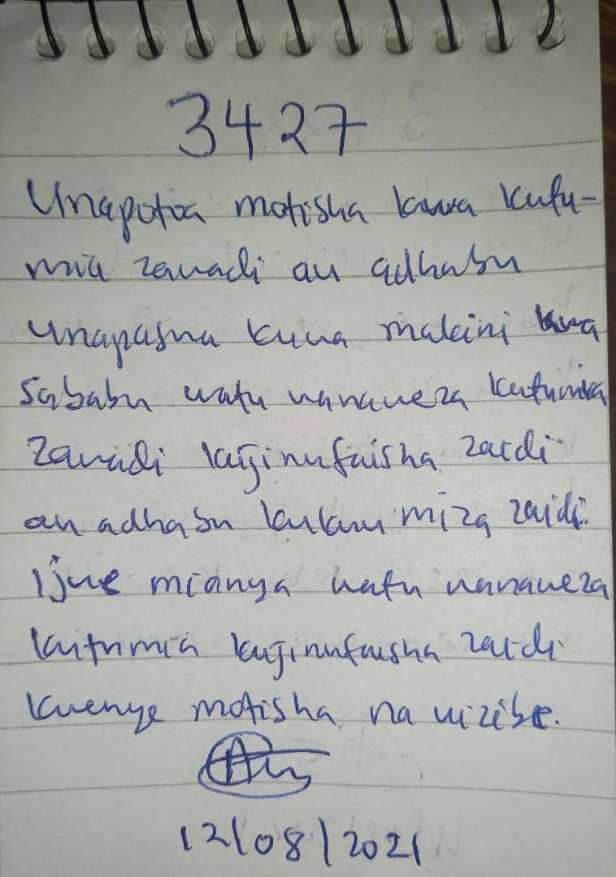 3427
Unapotoa motisha kwa kutu-
mia zawadi au adhabu
unapaswa kuwa makini kwa
sababu watu wanaweza kutumia
zawadi kujinufaisha zaidi
au adhabu kukuumiza zaidi.
Ijue mianya watu wanaweza
kuitumia kujinufaisha zaidi
kwenye motisha na uizibe.
12/08/2021